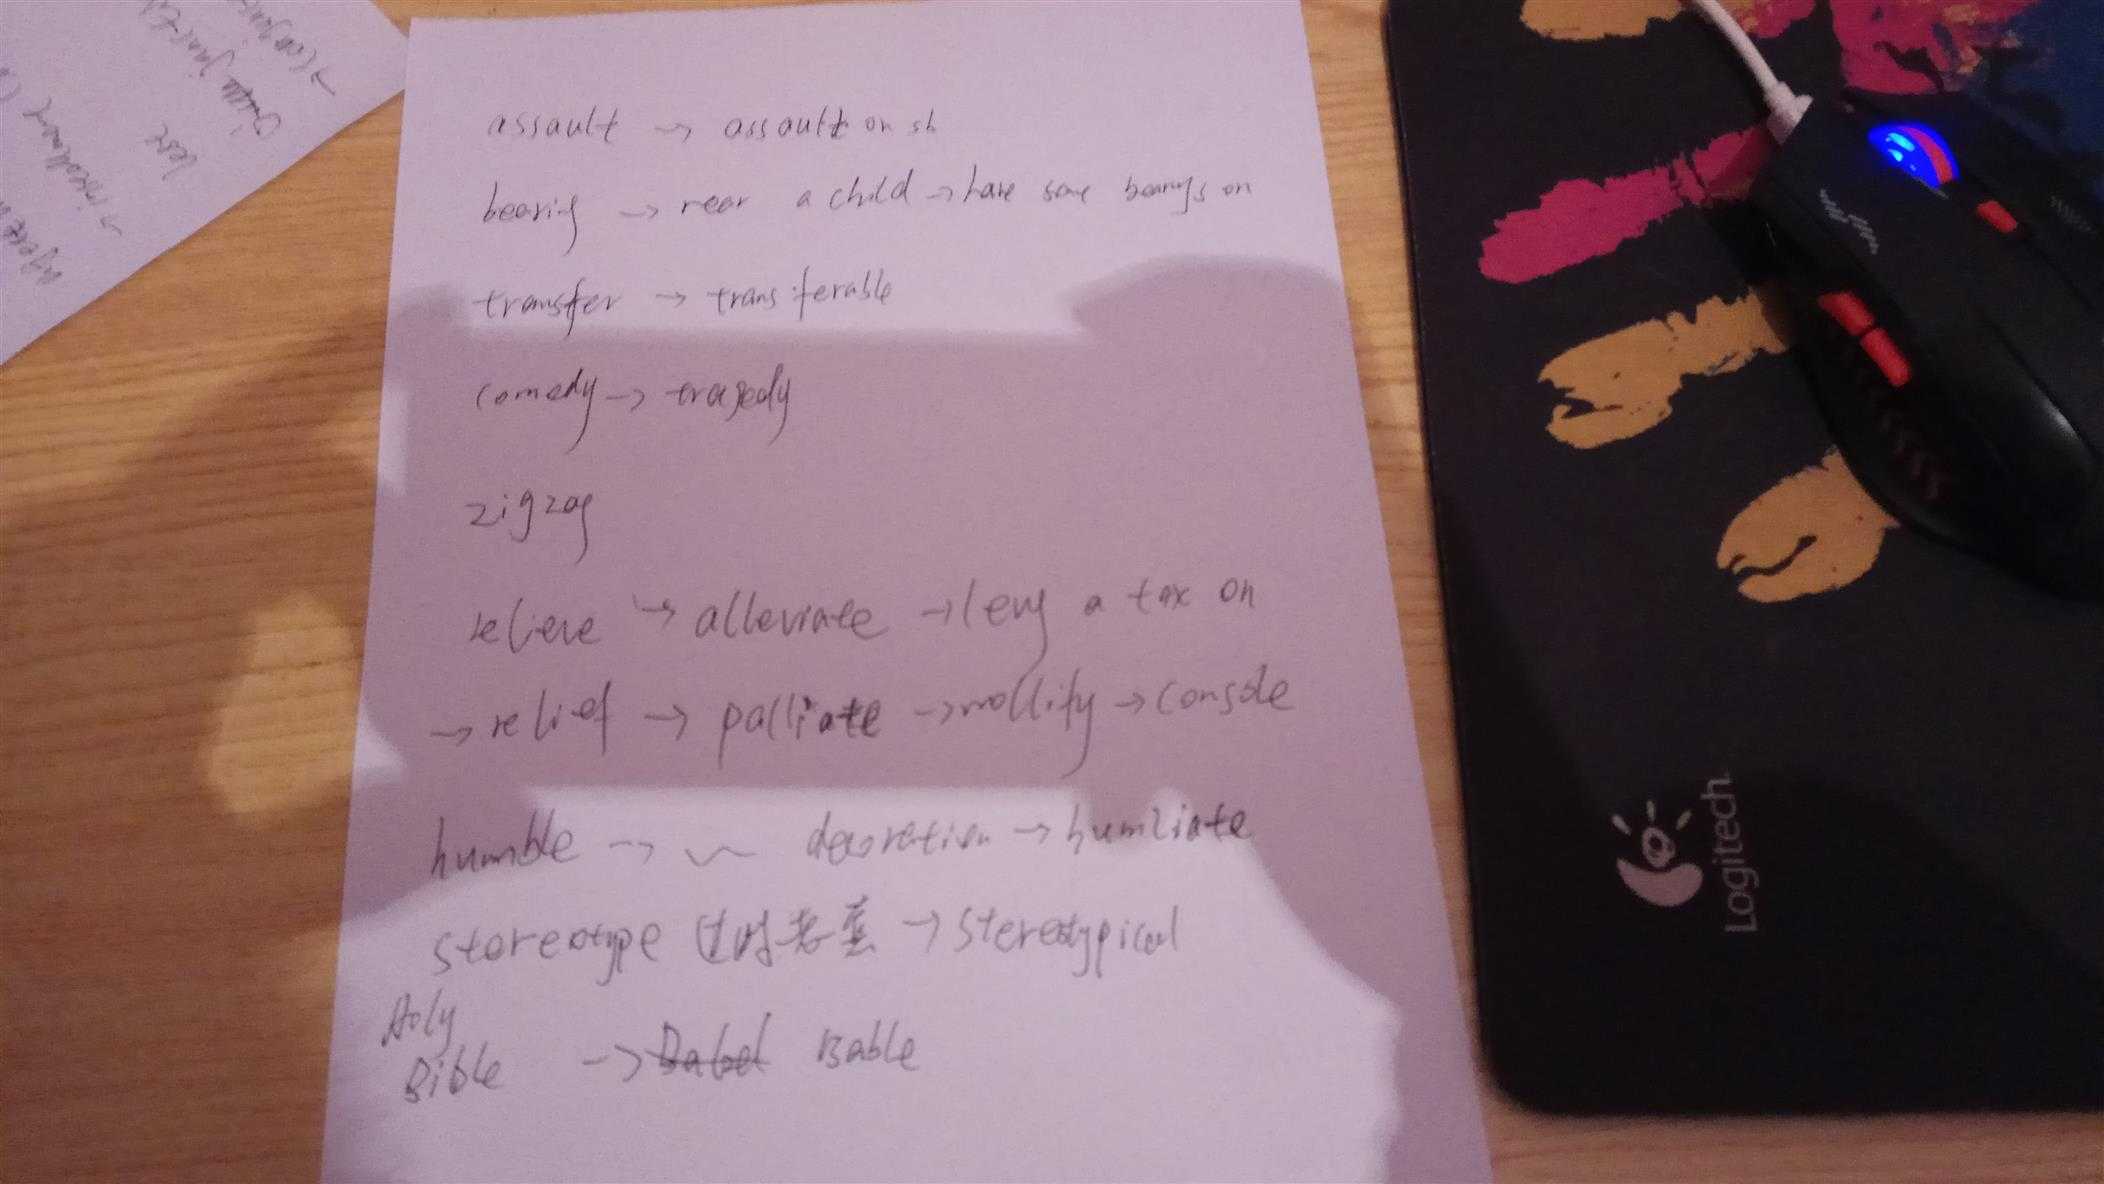 assault → assault on sb
bearing → rear a child → have some bearings on
transfer → transferable
comedy → tragedy
zigzag
relieve → alleviate → levy a tax on
→ relief → palliate → mollify → console
humble → ~ decoration → humiliate
stereotype 过时老套 → stereotypical
Holy
Bible → Babel Bable
Logitech